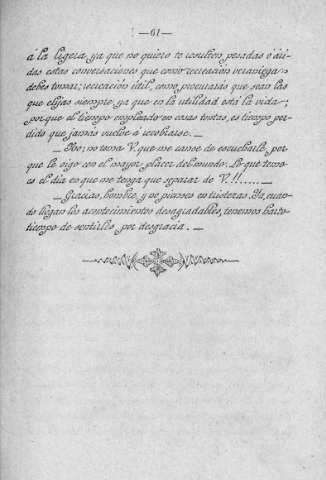 —61—
á la ligera, ya que no quiero te resulten pesadas ó ári-
das estas conversaciones que como recreación veraniega
debes tomar; recreación útil, como procurarás que sean las
que elijas siempre, ya que en la utilidad está la vida;
porque el tiempo empleado en cosas tontas, es tiempo per-
dido que jamás vuelve á recobrarse. —
— No; no tema V. que me canse de escucharle, por-
que le oigo con el mayor placer del mundo. Lo que temo
es el día en que me tenga que separar de V.!!.... —
— Gracias, hombre, y no pienses en tristezas. Ya, cuan-
do llegan los acontecimientos desagradables, tenemos harto
tiempo de sentirlos por desgracia. —